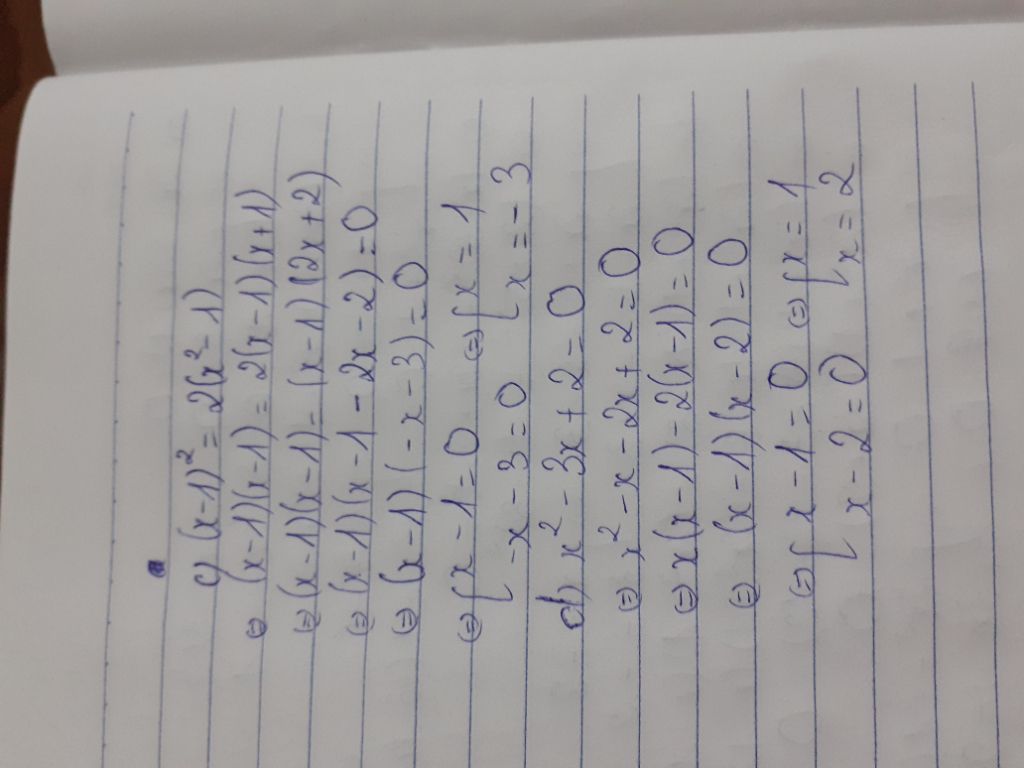 c) (x-1)² = 2(x²-1)
⇔ (x-1)(x-1) = 2(x-1)(x+1)
⇔ (x-1)(x-1) = (x-1)(2x+2)
⇔ (x-1)(x-1-2x-2) = 0
⇔ (x-1)(-x-3) = 0
⇔ [ x-1=0 ⇔ [ x = 1
-x-3=0 x = -3
d) x² - 3x + 2 = 0
⇔ x² - x - 2x + 2 = 0
⇔ x(x-1) - 2(x-1) = 0
⇔ (x-1)(x-2) = 0
⇔ [ x-1=0 ⇔ [ x = 1
x-2=0 x = 2